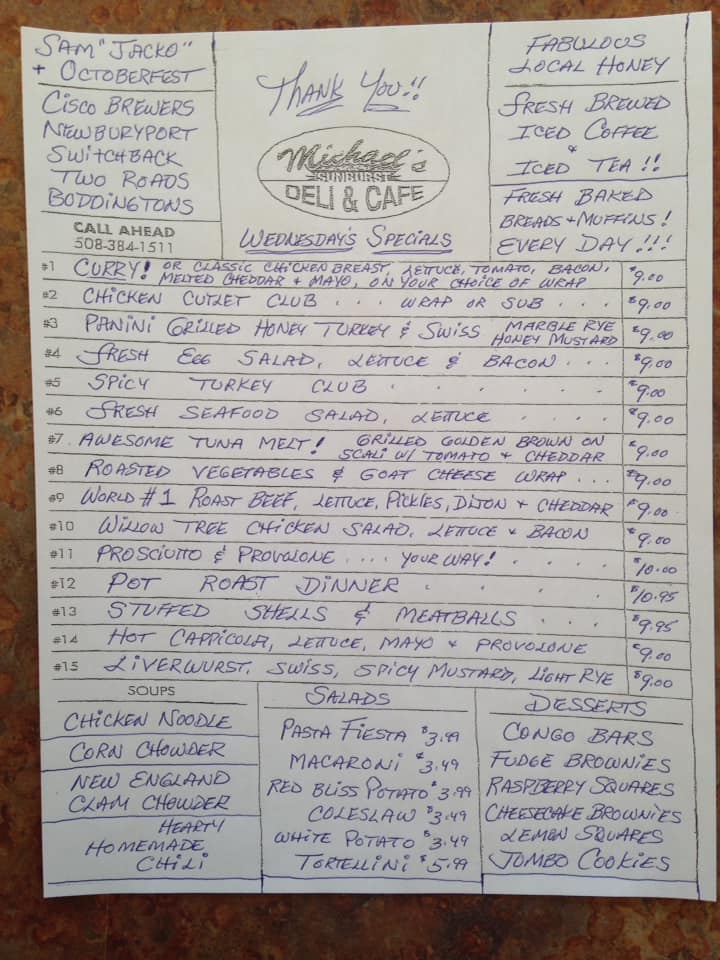 SAM "JACKO"
+ OCTOBERFEST
CISCO BREWERS
NEWBURYPORT
SWITCHBACK
TWO ROADS
BODDINGTONS
CALL AHEAD
508-384-1511
THANK YOU!!
Michael's
SUNBURST
DELI & CAFE
WEDNESDAY'S SPECIALS
FABULOUS
LOCAL HONEY
FRESH BREWED
ICED COFFEE
&
ICED TEA!!
FRESH BAKED
BREADS + MUFFINS!
EVERY DAY!!!
#1 CURRY! OR CLASSIC CHICKEN BREAST, LETTUCE, TOMATO, BACON,
MELTED CHEDDAR & MAYO, ON YOUR CHOICE OF WRAP $9.00
#2 CHICKEN CUTLET CLUB . . . WRAP OR SUB . . . $9.00
#3 PANINI GRILLED HONEY TURKEY & SWISS MARBLE RYE
HONEY MUSTARD $9.00
#4 FRESH EGG SALAD, LETTUCE & BACON . . . $9.00
#5 SPICY TURKEY CLUB . . . . . . $9.00
#6 FRESH SEAFOOD SALAD, LETTUCE . . . . $9.00
#7 AWESOME TUNA MELT! GRILLED GOLDEN BROWN ON
SCALI W/ TOMATO & CHEDDAR $9.00
#8 ROASTED VEGETABLES & GOAT CHEESE WRAP . . . $9.00
#9 WORLD #1 ROAST BEEF, LETTUCE, PICKLES, DIJON + CHEDDAR $9.00
#10 WILLOW TREE CHICKEN SALAD, LETTUCE & BACON $9.00
#11 PROSCIUTTO & PROVOLONE . . . . YOUR WAY! . . . $10.00
#12 POT ROAST DINNER . . . . $10.95
#13 STUFFED SHELLS & MEATBALLS . . . . $9.95
#14 HOT CAPPICOLA, LETTUCE, MAYO & PROVOLONE $9.00
#15 LIVERWURST, SWISS, SPICY MUSTARD, LIGHT RYE $9.00
SOUPS
CHICKEN NOODLE
CORN CHOWDER
NEW ENGLAND
CLAM CHOWDER
HEARTY
HOMEMADE
CHILI
SALADS
PASTA FIESTA $3.99
MACARONI $3.49
RED BLISS POTATO $3.99
COLESLAW $3.49
WHITE POTATO $3.49
TORTELLINI $5.99
DESSERTS
CONGO BARS
FUDGE BROWNIES
RASPBERRY SQUARES
CHEESECAKE BROWNIES
LEMON SQUARES
JUMBO COOKIES